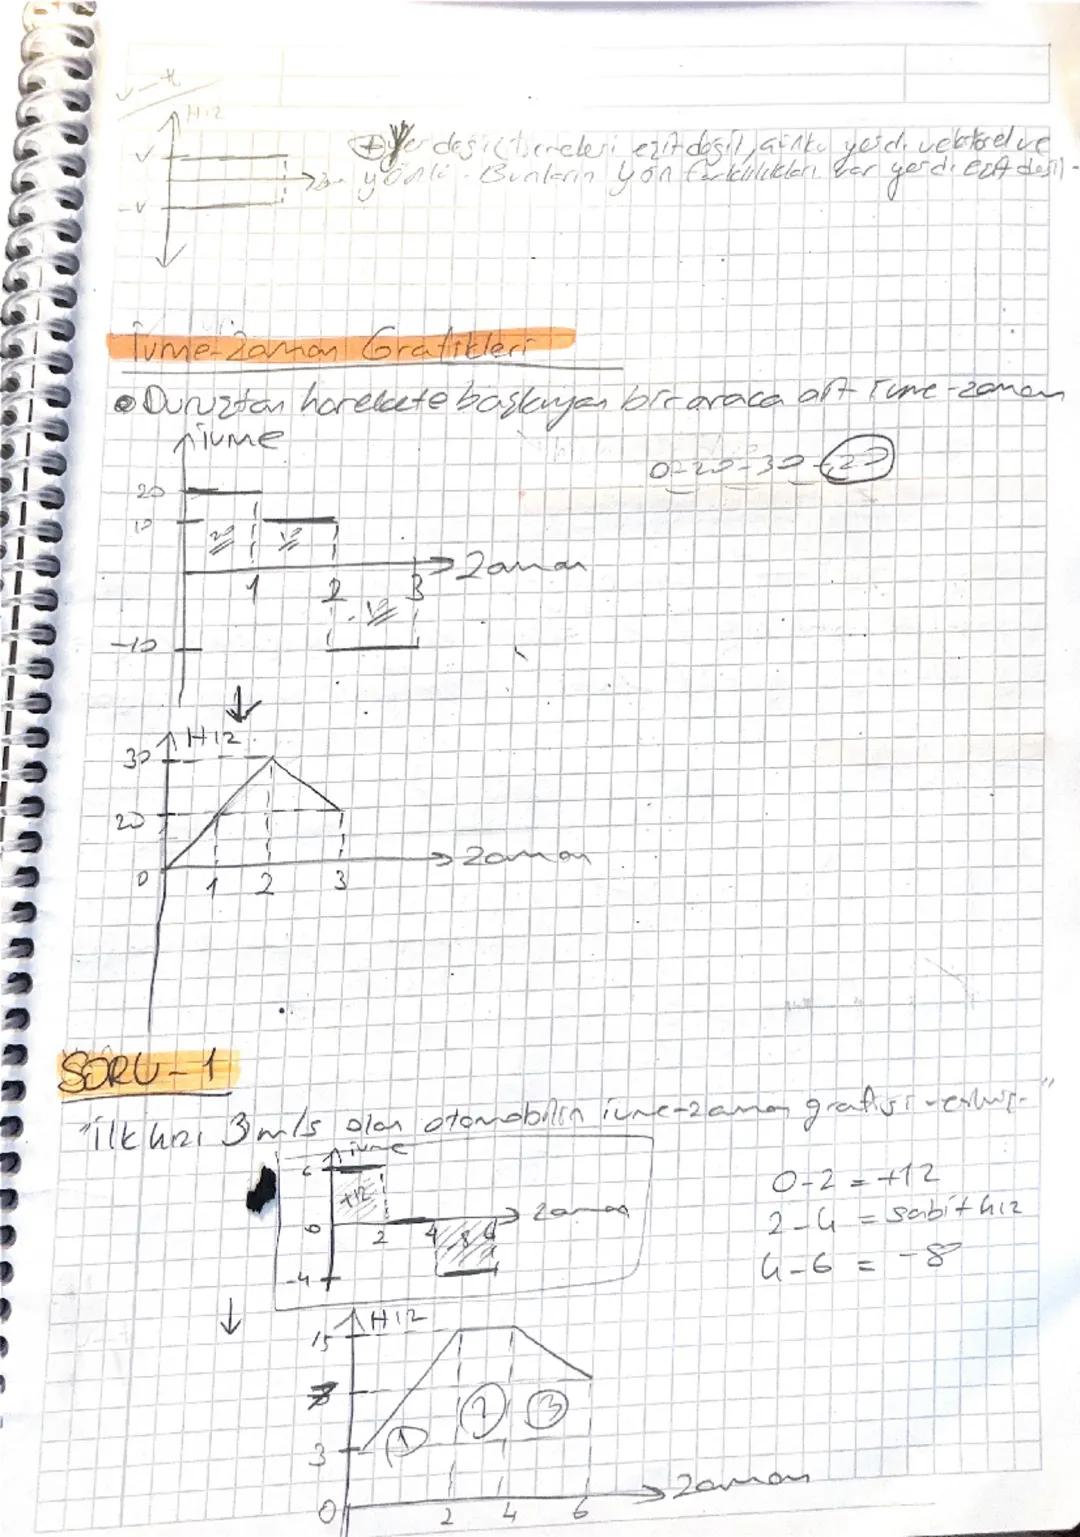 v-t
Hız
v
-v
⊕ yer değiştirmeleri eşit değil, çünkü yerdi. vektörel ve
yönlü. Bunların yön farklılıkları var yerdi. eşit değil.
İvme-Zaman Grafikleri
Duruştan harekete başlayan bir araca ait ivme-zaman
ivme
0-20-30-20
20
10
20
10
Zaman
1 2 3
10
-10
Hız
30
20
Zaman
0
1 2 3
SORU-1
"ilk hızı 3 m/s olan otomobilin ivme-zaman grafiği verilmiş."
ivme
6
+12
0-2 = +12
Zaman
0
2 4 6
8
2-4 = sabit hız
-4
4-6 = -8
Hız
15
7
1 2 3
3
Zaman
0
2 4 6